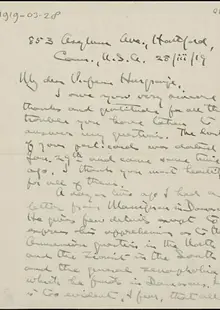 1919-03-28
853 Asylum Ave., Hartford,
Conn., U.S.A. 28/iii/19
My dear Professor Hurgronje,
I owe you very sincere
thanks and gratitude for all the
trouble you have taken to
answer my questions. The last
of your postcards was dated
Jan. 29th and came some time
ago. I thank you most heartily
for all of them.
A day or two ago I had a
letter from Massignon in Damascus.
He gives few details except to
express his apprehension as to the
Armenian question in the North
and the Zionist in the South
and the general xenophobia
which he finds in Damascus. It
is too evident, I fear, that all